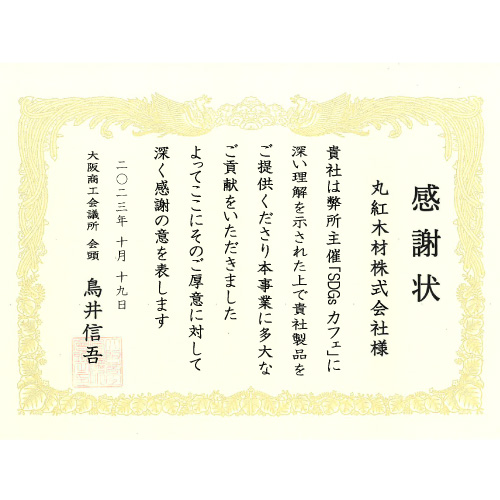 感謝状
丸紅木材株式会社様
貴社は弊所主催「SDGsカフェ」に
深い理解を示された上で貴社製品を
ご提供くださり本事業に多大な
ご貢献をいただきました
よってここにそのご厚意に対して
深く感謝の意を表します
二〇二三年 十月 十九日
大阪商工会議所 会頭 鳥井信吾